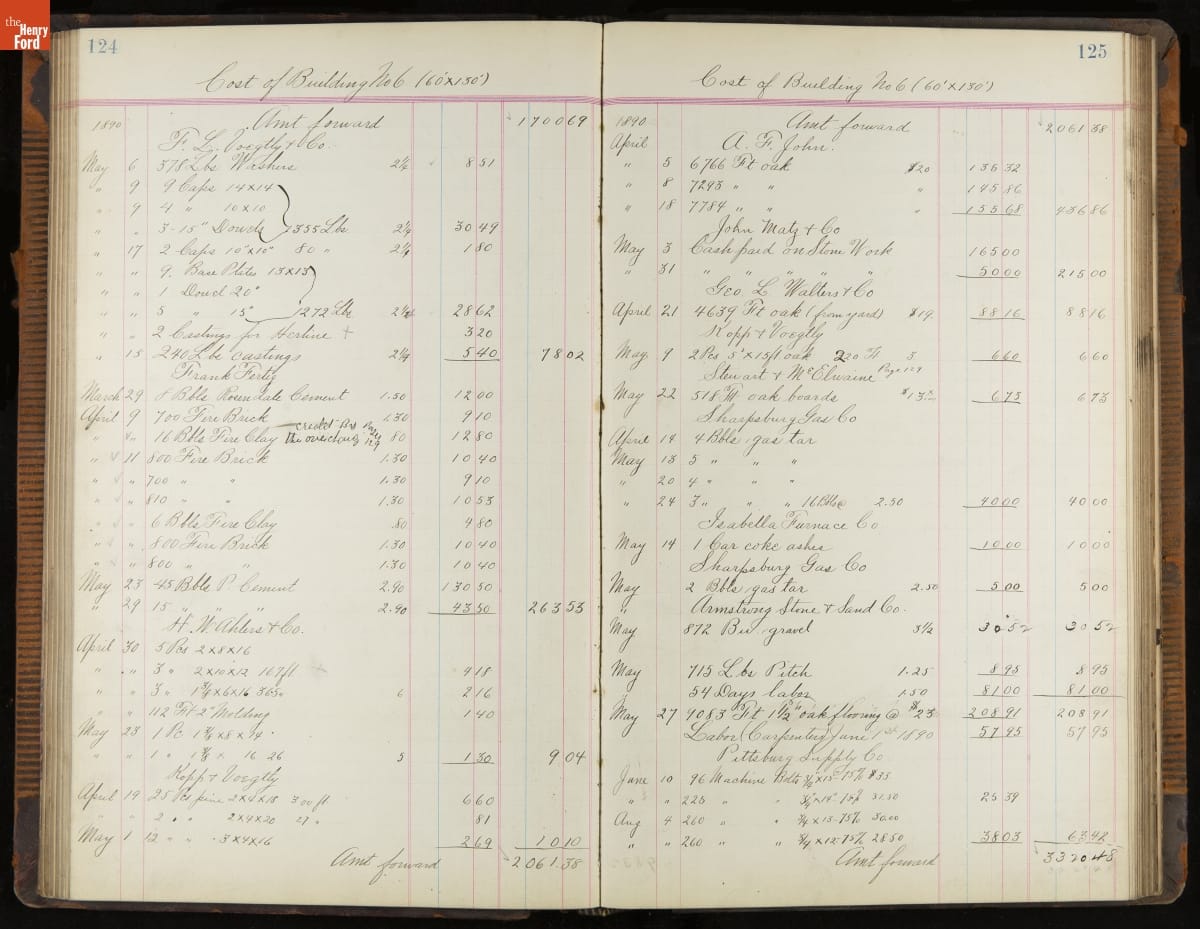 the Henry Ford
124
Cost of Building No 6 (60'x130')
1890 Amt forward 1700 69
F. L. Voegtly & Co.
May 6 378 Lbs Washers 2 1/4 8 51
" 9 9 Caps 14x14
" 9 4 " 10x10
" " 3-15" Dowels 1355 Lbs 2 1/4 30 49
" 17 2 Caps 10"x10" 80 " 2 1/4 1 80
" " 9. Base Plates 13x13
" " 1 Dowel 20"
" " 5 " 15" 1272 Lbs 2 1/4 28 62
" " 2 Castings for Herline + 3 20
" 15 240 Lbs castings 2 1/4 5 40 78 02
Frank Fertig
March 29 8 Bbls Rosendale Cement 1.50 12 00
April 9 700 Fire Brick 1.30 9 10
" " 16 Bbls Fire Clay credit Brs Page the overcharg 129 80 12 80
" 11 800 Fire Brick 1.30 10 40
" " 700 " " 1.30 9 10
" " 810 " " 1.30 10 53
" " 6 Bbls Fire Clay .80 4 80
" " 800 Fire Brick 1.30 10 40
" " 800 " " 1.30 10 40
May 23 45 Bbls P. Cement 2.90 130 50
" 29 15 " " " 2.90 43 50 263 53
H. W. Ahlers & Co.
April 30 5 Pcs 2x8x16
" " 3 " 2x10x12 167 ft + 4 18
" " 3 " 6 2 16
" " 112 Ft 2" Molding 1 40
May 23 1 Pc
" " 1 " 16 26 5 1 30 9 04
Kopp & Voegtly
April 19 25 Pcs pine 2x4x18 300 ft 6 60
" " 2 " " 2x4x20 27 " 81
May 1 12 " " 3x4x16 2 69 10 10
Amt forward 2061.38
125
Cost of Building No 6 (60'x130')
1890 Amt forward 2061 38
April A. F. John.
" 5 6766 Ft oak $20 135 32
" 8 7293 " " " 145 86
" 18 7784 " " " 155 68 436 86
John Matz & Co
May 3 Cash paid on Stone Work 165 00
" 31 " " " " " 50 00 215 00
Geo. L Walters & Co
April 21 4639 Ft oak (from yard) $19. 88 16 88 16
Kopp & Voegtly
May 9 2 Pcs 5"x15 ft oak 220 Ft 3 6 60 6 60
Stewart & McElwaine Page 129
May 22 518 Ft oak boards $13.00 6 73 6 73
Sharpsburg Gas Co
April 14 4 Bbls gas tar
May 13 5 " " "
" 20 4 " " "
" 24 3 " " " 16 Bbls @ 2.50 40 00 40 00
Isabella Furnace Co
May 14 1 Car coke ashes 10 00 10 00
Sharpsburg Gas Co
May 2 Bbls gas tar 2.50 5 00 5 00
" Armstrong Stone & Sand Co.
May 872 Bu. gravel 3 1/2 30 52 30 52
May 715 Lbs Pitch 1.25 8 95 8 95
" 54 Days labor 1.50 81 00 81 00
May 27 9083 Ft 1 1/2" oak flooring @ $23 208 91 208 91
Labor (Carpenter) June 1st 1890 57 95 57 95
Pittsburg Supply Co
June 10 96 Machine Bolts
" " 228 " " 25 39
Aug 4 260 " "
" " 260 " " 38 03 63 42
Amt forward 3320 48